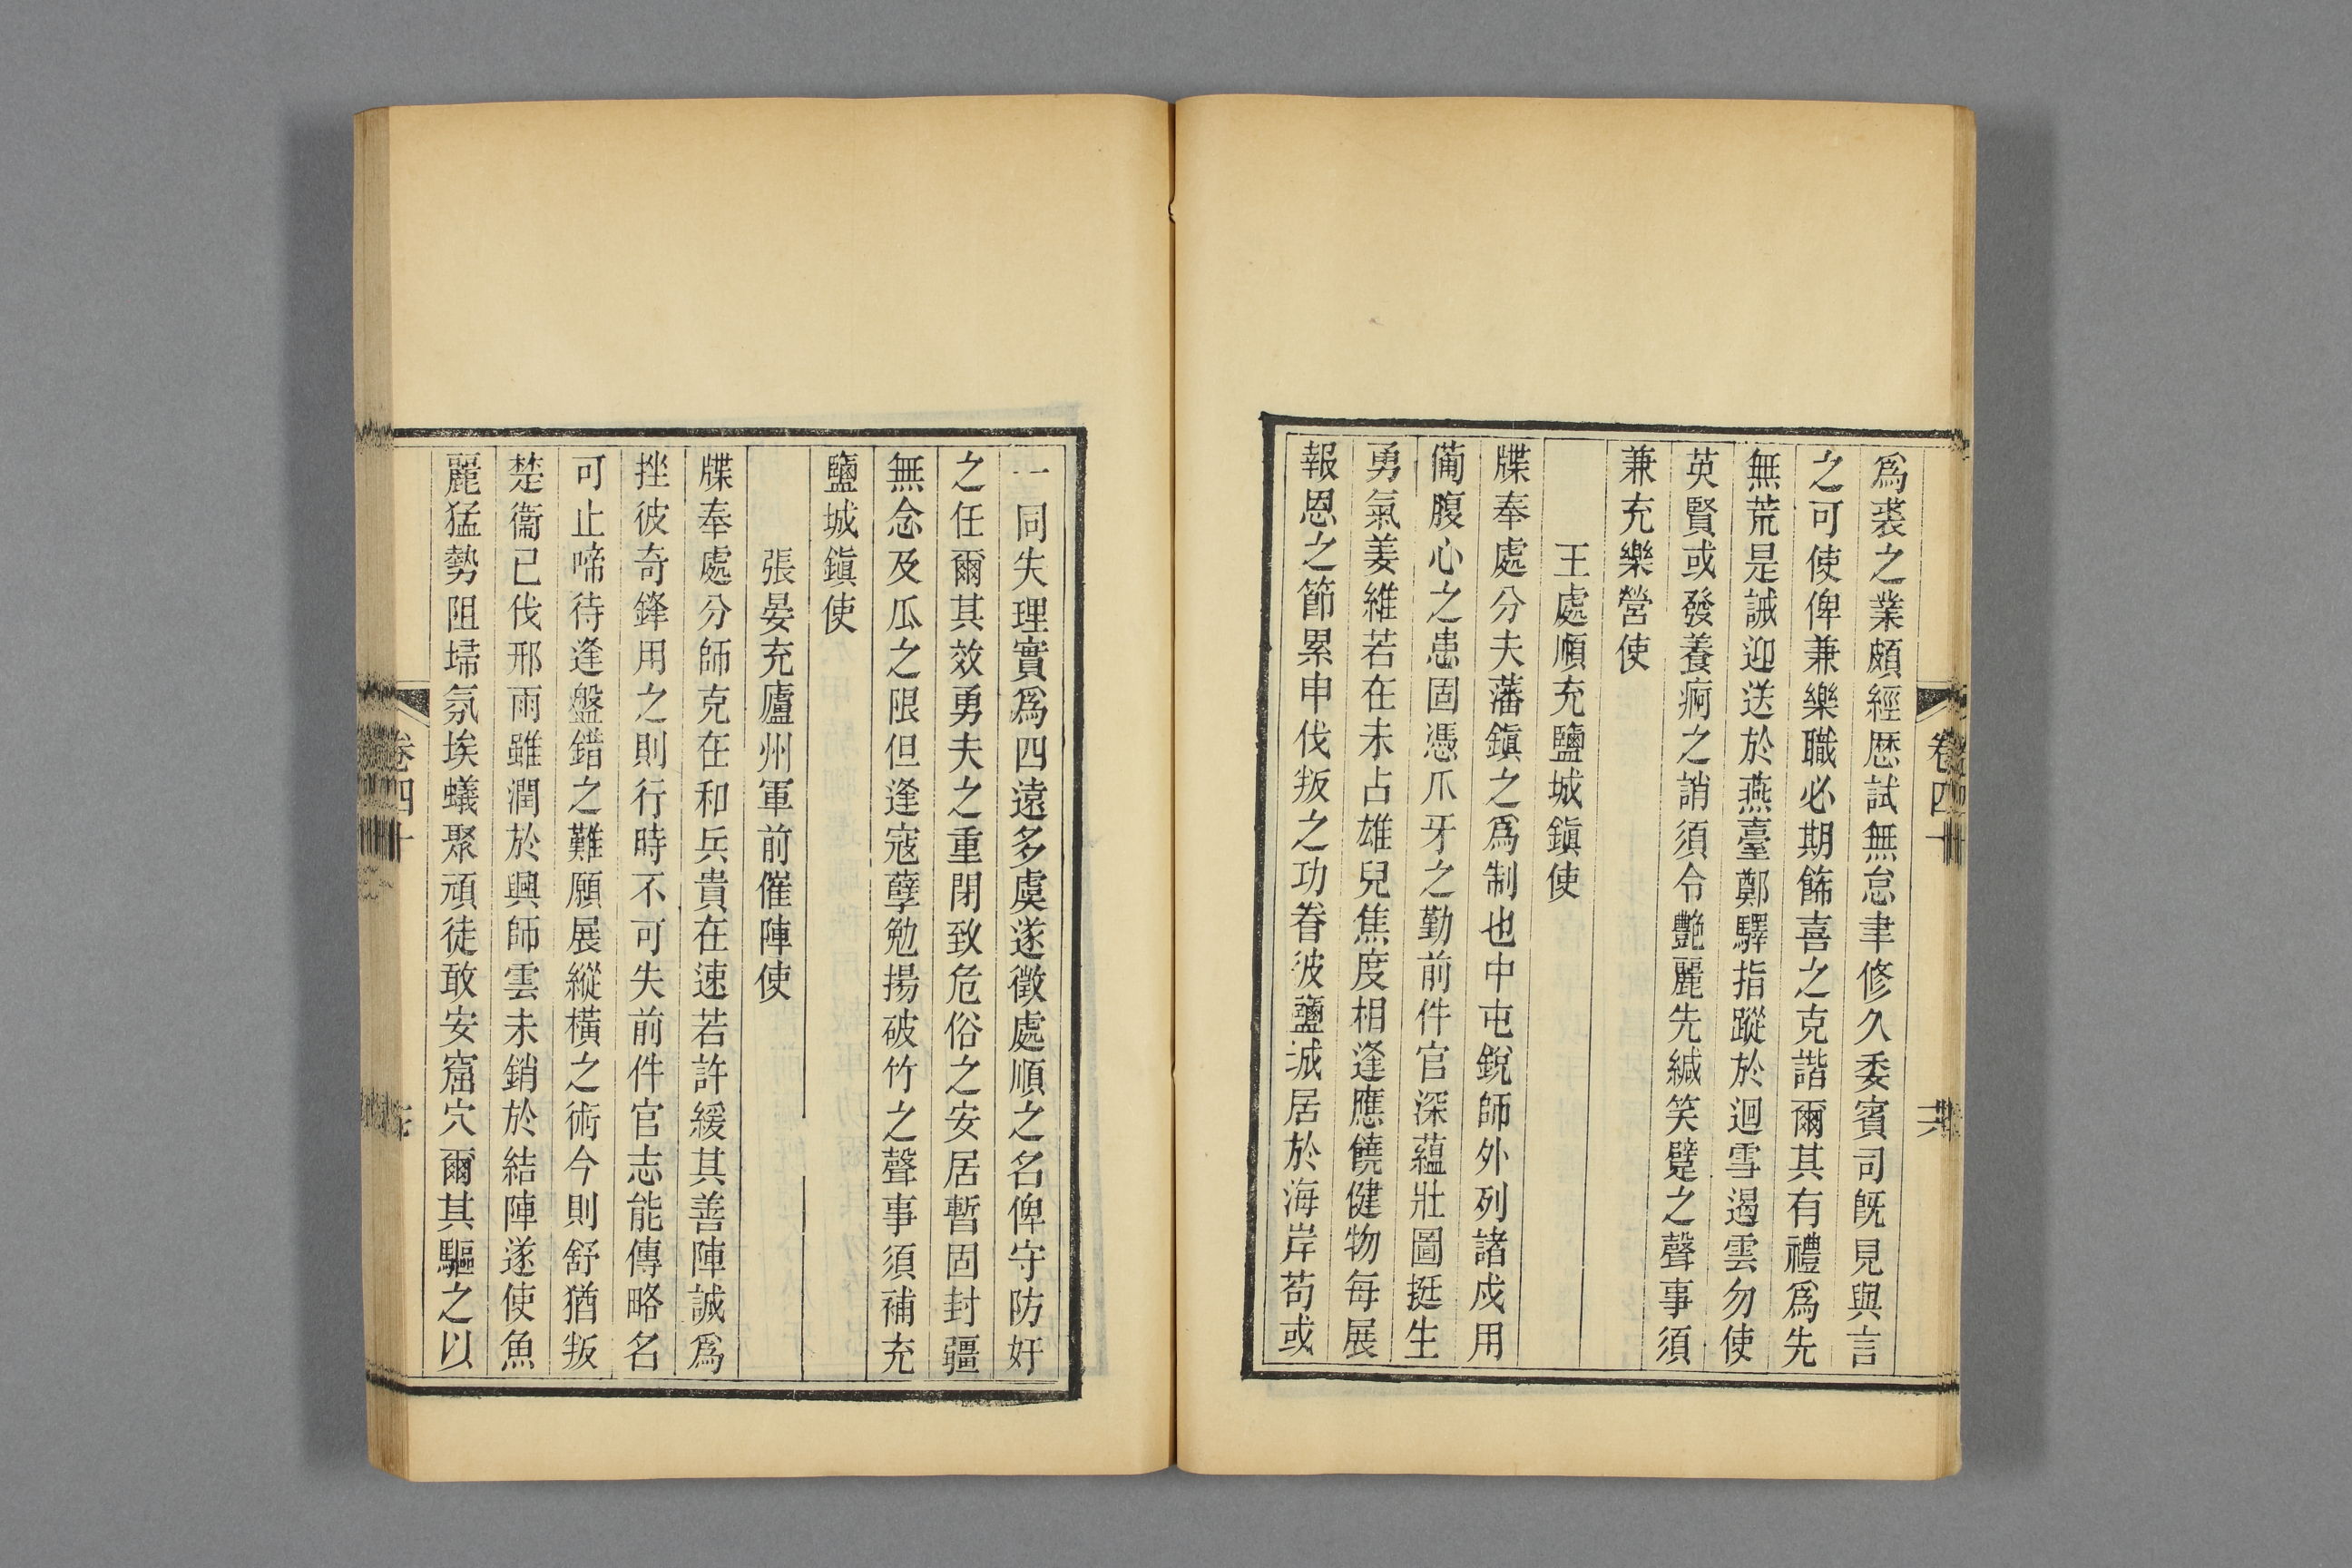 爲裘之業頗經歴試無怠聿修久委賓司旣見與言
之可使俾兼樂職必期飾喜之克諧爾其有禮爲先
無荒是誡迎送於燕臺鄭驛指蹤於迴雪遏雲勿使
英賢或發養痾之誚須令艷麗先緘笑躄之聲事須
兼充樂營使
王處順充鹽城鎭使
牒奉處分夫藩鎭之爲制也中屯銳師外列諸戍用
備腹心之患固憑爪牙之勤前件官深蘊壯圖挺生
勇氣姜維若在未占雄兒焦度相逢應饒健物每展
報恩之節累申伐叛之功眷彼鹽城居於海岸苟或
一同失理實爲四遠多虞遂徵處順之名俾守防奸
之任爾其效勇夫之重閉致危俗之安居暫固封疆
無念及瓜之限但逢寇孽勉揚破竹之聲事須補充
鹽城鎭使
張晏充廬州軍前催陣使
牒奉處分師克在和兵貴在速若許緩其善陣誠爲
挫彼奇鋒用之則行時不可失前件官志能傳略名
可止啼待逢盤錯之難願展縱橫之術今則舒猶叛
楚衞已伐邢雨雖潤於興師雲未銷於結陣遂使魚
麗猛勢阻埽氛埃蟻聚頑徒敢安窟穴爾其驅之以
卷四十